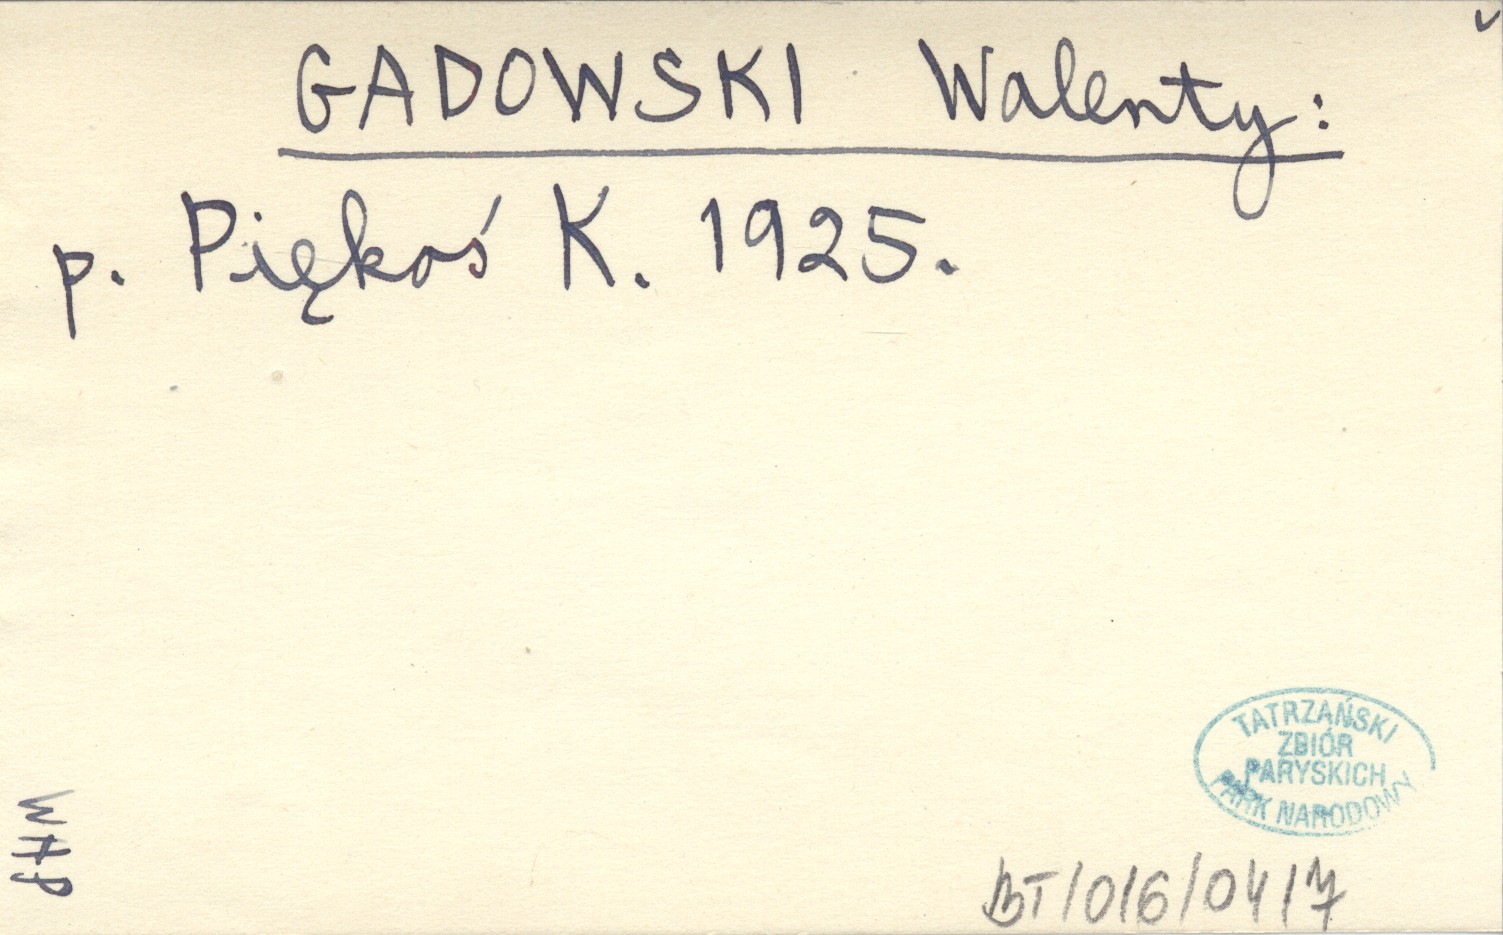 GADOWSKI Walenty:
p. Piękoś K. 1925.
TATRZAŃSKI
ZBIÓR
PARYSKICH
PARK NARODOWY
WHP
BT/016/04/7